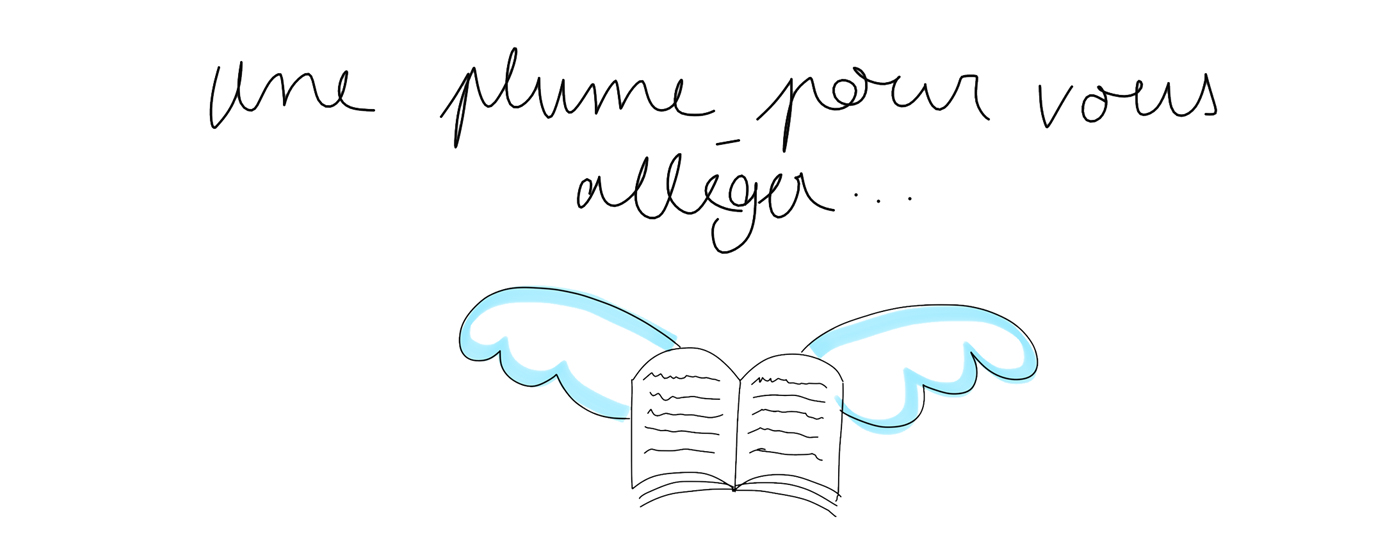 une plume pour vous
alléger...